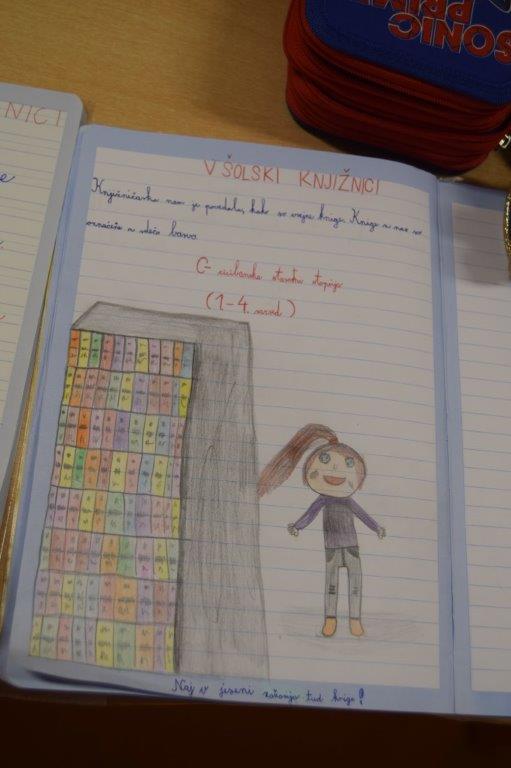 SONIC
PRIME
NICI
V ŠOLSKI KNJIŽNICI
Knjižničarka nam je povedala, kako so urejene knjige. Knjige za nas so
označene z rdečo barvo.
C- cicibanska starostna stopnja
(1-4. razred)
Naj v jeseni zakonja tud knjiga!